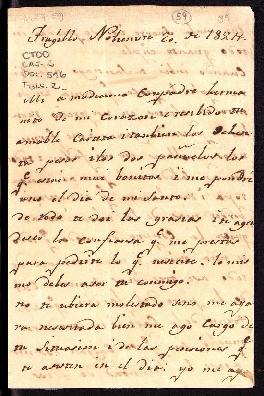 59
Trugillo Nobienvre 20. de 1824.
CTDO
CAJ. 3
DOC. 596
Folio. 2
Mi amadicimo Conpadre i erma
nito de mi Corazon e resibido tu
amable Carta i tanbien los ochen
ta pesos i los dos pañuelos los
q. estan mui bonitos i me pondré
uno el dia de mi Santo.
de todo te doi las grasias i te agra
desco la confiansa q. me prestas
para pedirte lo q. nesesite. lo mis
mo debes aser tu conmigo.
no te ubiera molestado sino me aya
ra nesesitada bien me ago Cargo de
tu Situasion i de las pensiones q.
te asisten en el dia. yo me ago